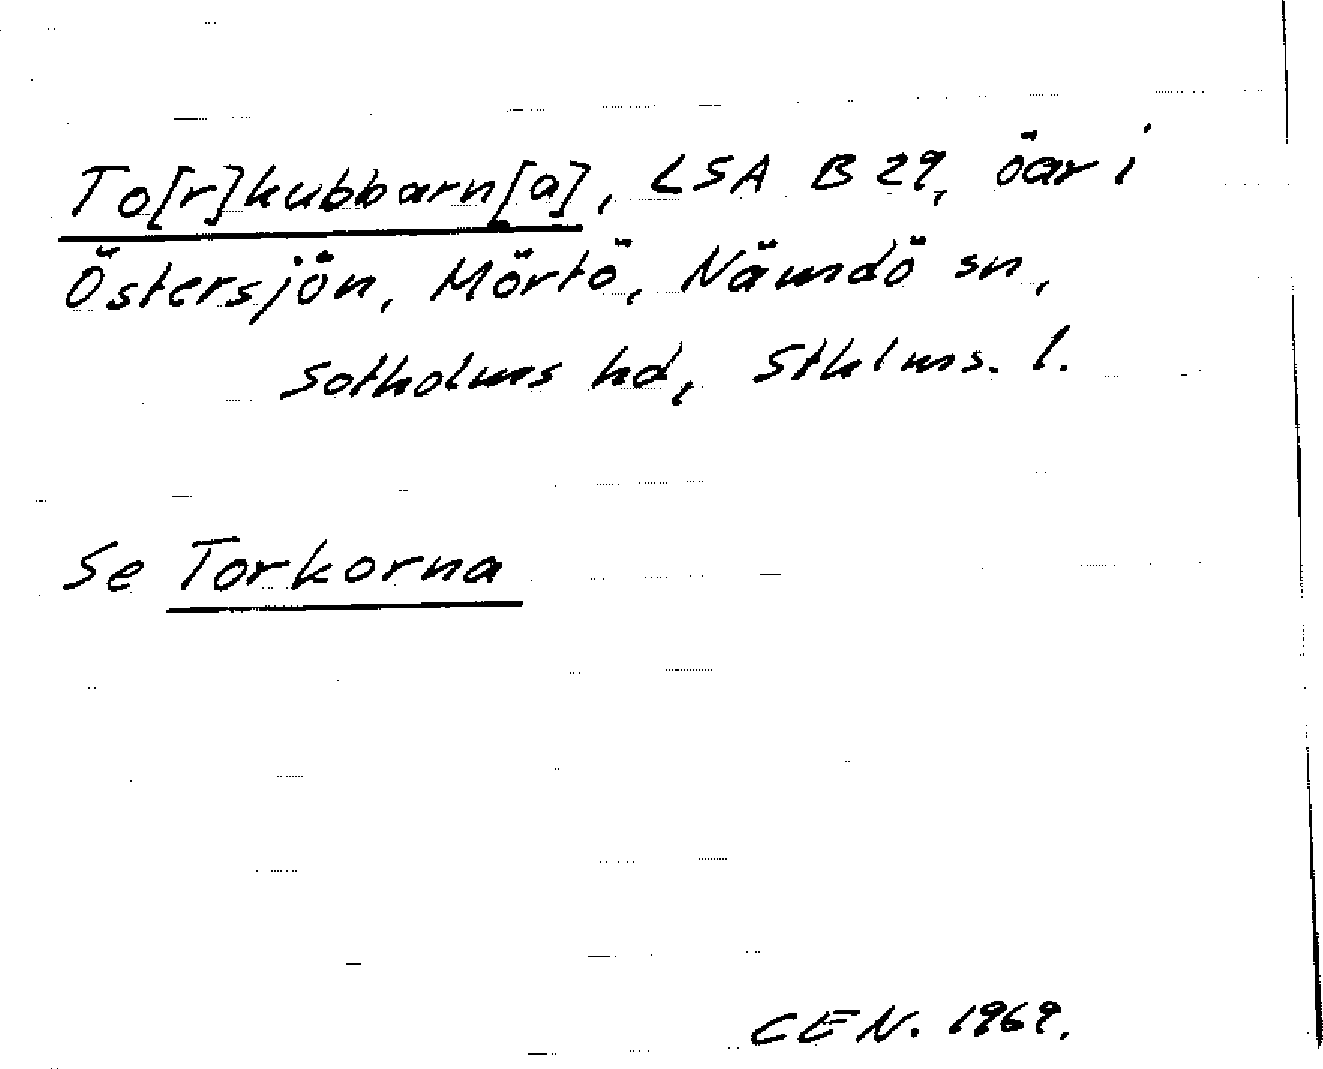 To[r]kubbarn[a], LSA B 29, öar i
Östersjön, Mörtö, Nämdö sn,
Sotholms hd, Sthlms. l.
Se Torkorna
CEN. 1969.